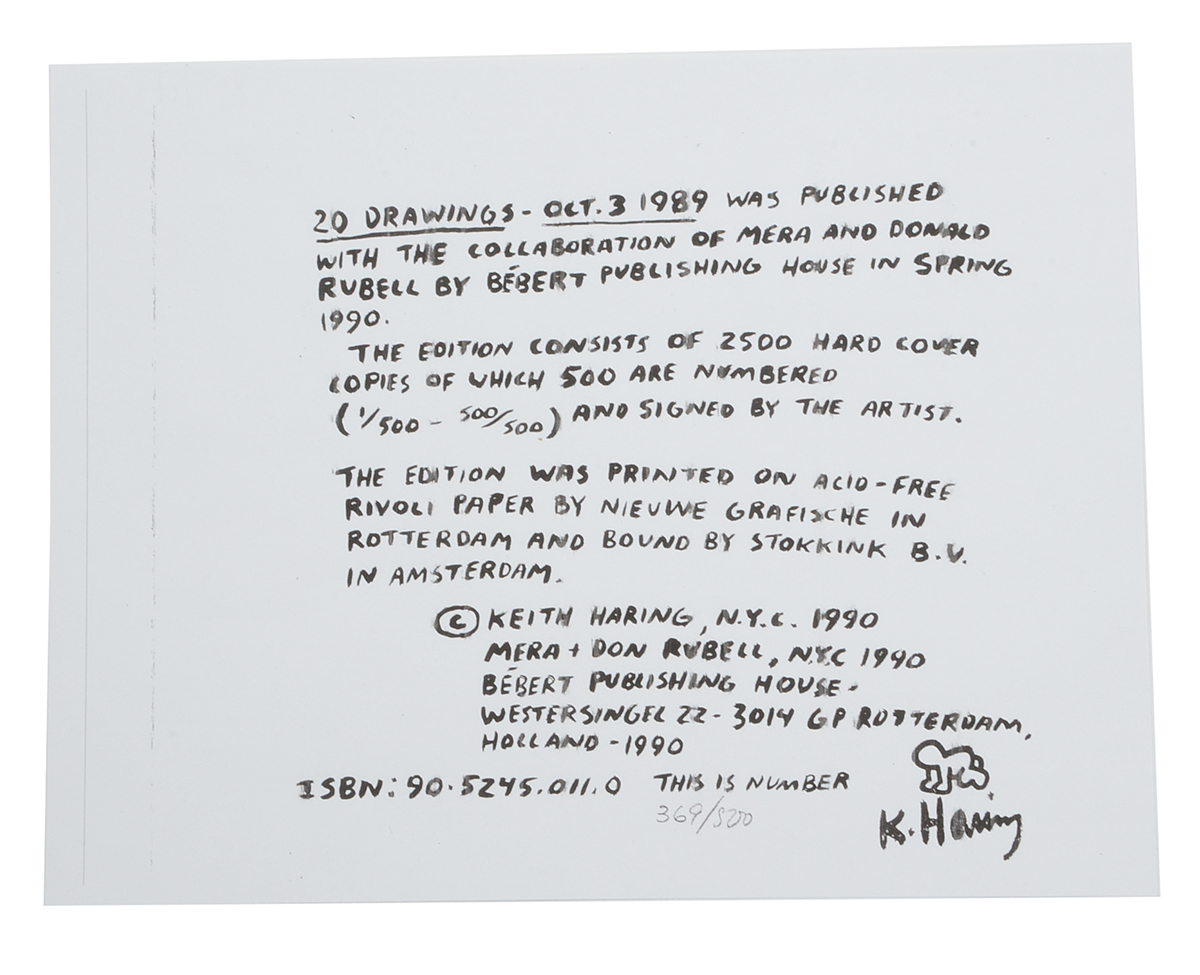 20 DRAWINGS - OCT. 3 1989 WAS PUBLISHED
WITH THE COLLABORATION OF MERA AND DONALD
RUBELL BY BÉBERT PUBLISHING HOUSE IN SPRING
1990.
THE EDITION CONSISTS OF 2500 HARD COVER
COPIES OF WHICH 500 ARE NUMBERED
(1/500 - 500/500) AND SIGNED BY THE ARTIST.
THE EDITION WAS PRINTED ON ACID-FREE
RIVOLI PAPER BY NIEUWE GRAFISCHE IN
ROTTERDAM AND BOUND BY STOKKINK B.V.
IN AMSTERDAM.
© KEITH HARING, N.Y.C. 1990
MERA + DON RUBELL, NYC 1990
BÉBERT PUBLISHING HOUSE -
WESTERSINGEL 22 - 3014 GP ROTTERDAM,
HOLLAND - 1990
ISBN: 90.5245.011.0 THIS IS NUMBER
369/500
K. Haring